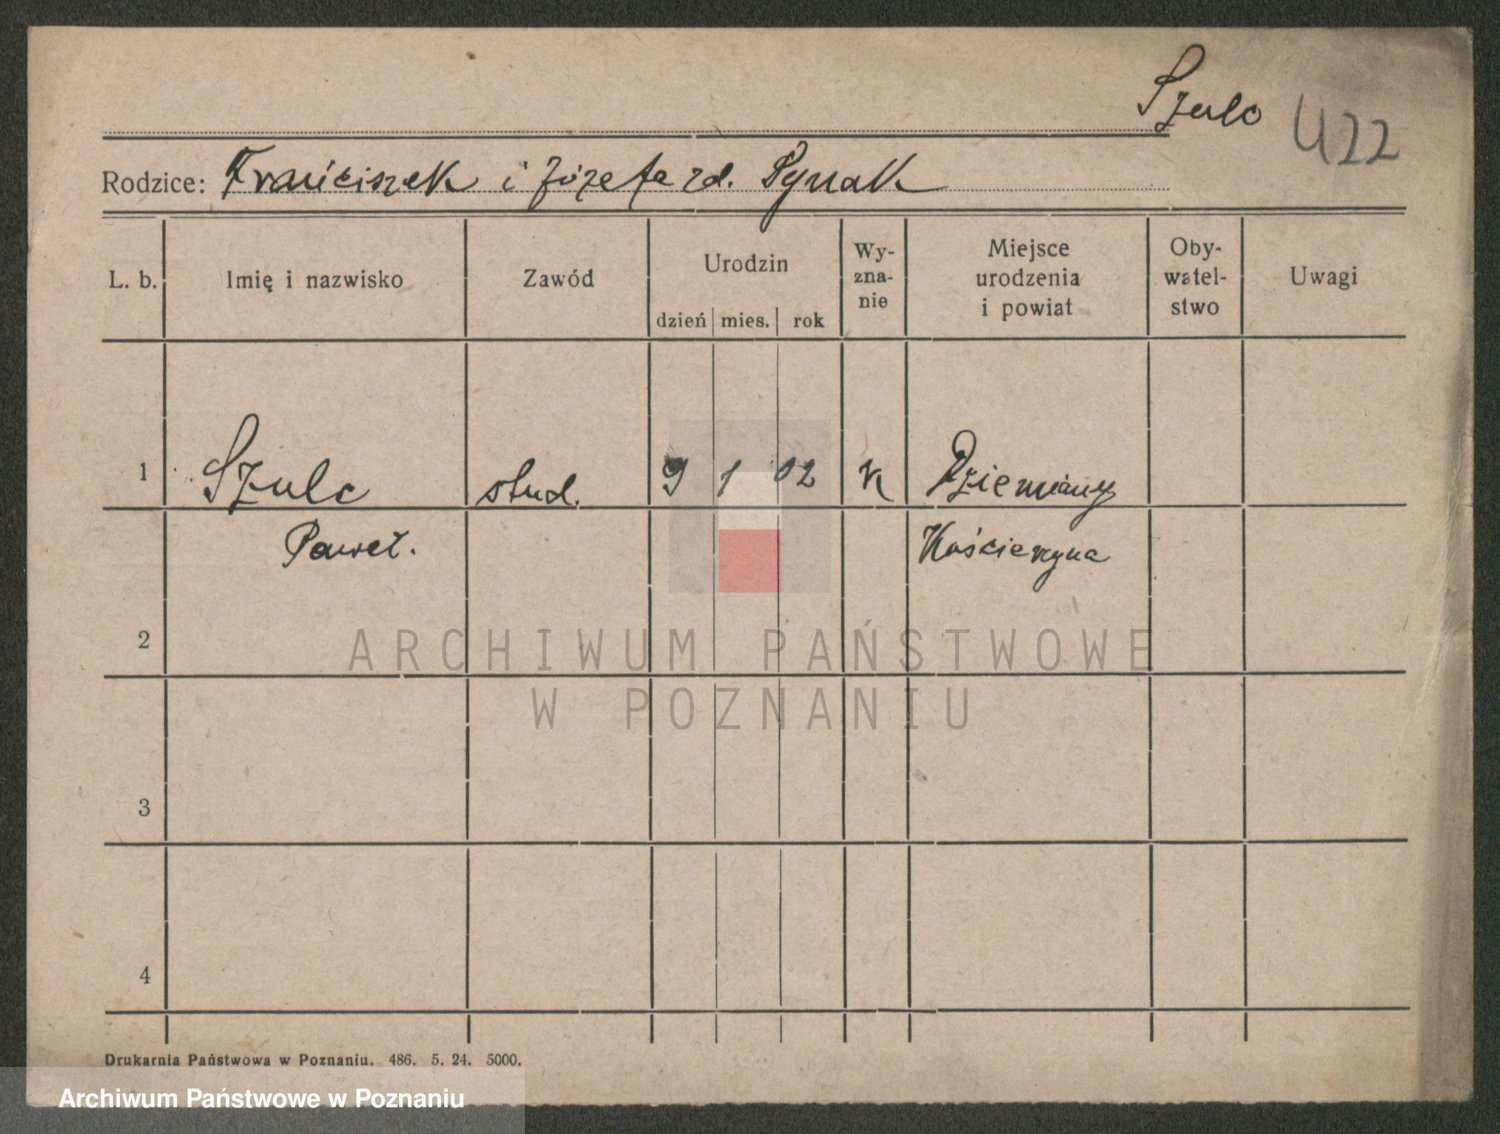 Szulc 422
Rodzice: Franciszek i Józefa zd. Pynak
L. b. Imię i nazwisko Zawód Urodzin dzień mies. rok Wy-zna-nie Miejsce urodzenia i powiat Oby-watel-stwo Uwagi
1 Szulc stud. 9 1 02 k Dziemiany
Paweł. Kościerzyna
2
ARCHIWUM PAŃSTWOWE
W POZNANIU
3
4
Drukarnia Państwowa w Poznaniu. 486. 5. 24. 5000.
Archiwum Państwowe w Poznaniu